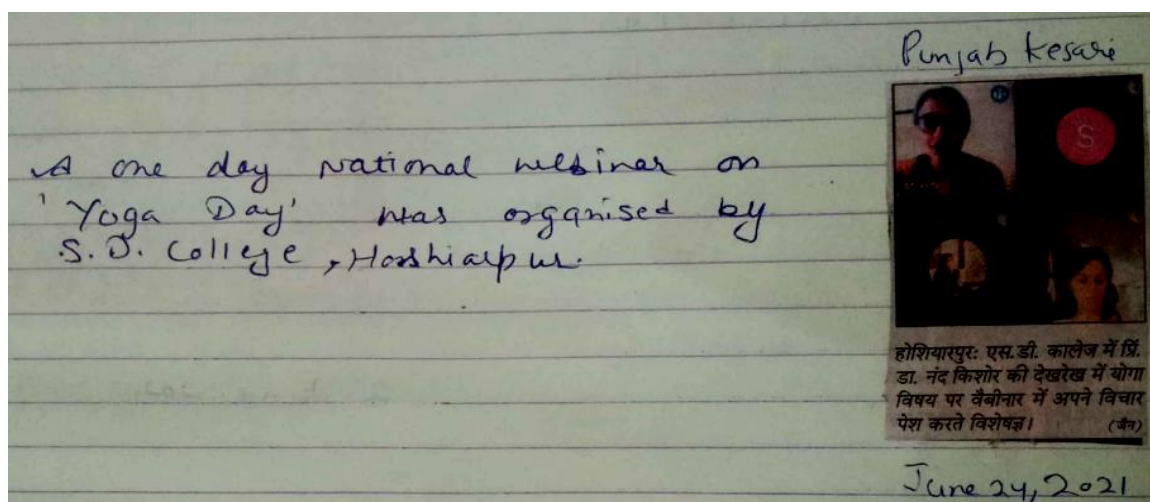 Punjab Kesari
A one day National webinar on
'Yoga Day' was organised by
S.D. College, Hoshiarpur.
S
होशियारपुर: एस.डी. कालेज में प्रिं.
डा. नंद किशोर की देखरेख में योगा
विषय पर वैबीनार में अपने विचार
पेश करते विशेषज्ञ। (जैन)
June 24, 2021